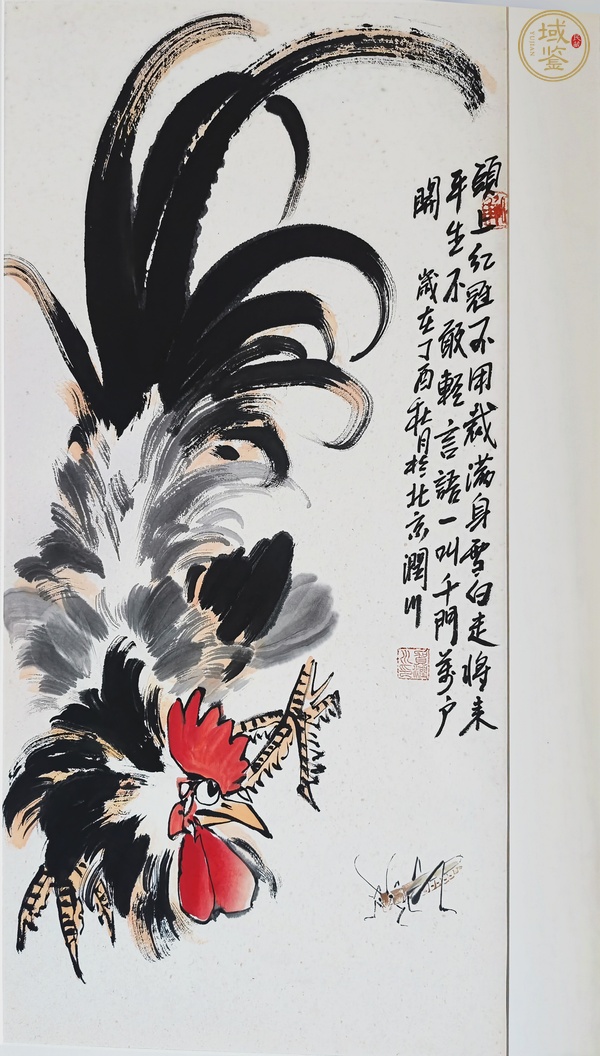 頭上红冠不用裁满身雪白走將来
平生不敢輕言語一叫千門萬户
開
歲在丁酉秋月於北京潤川
域鉴
YUJIAN